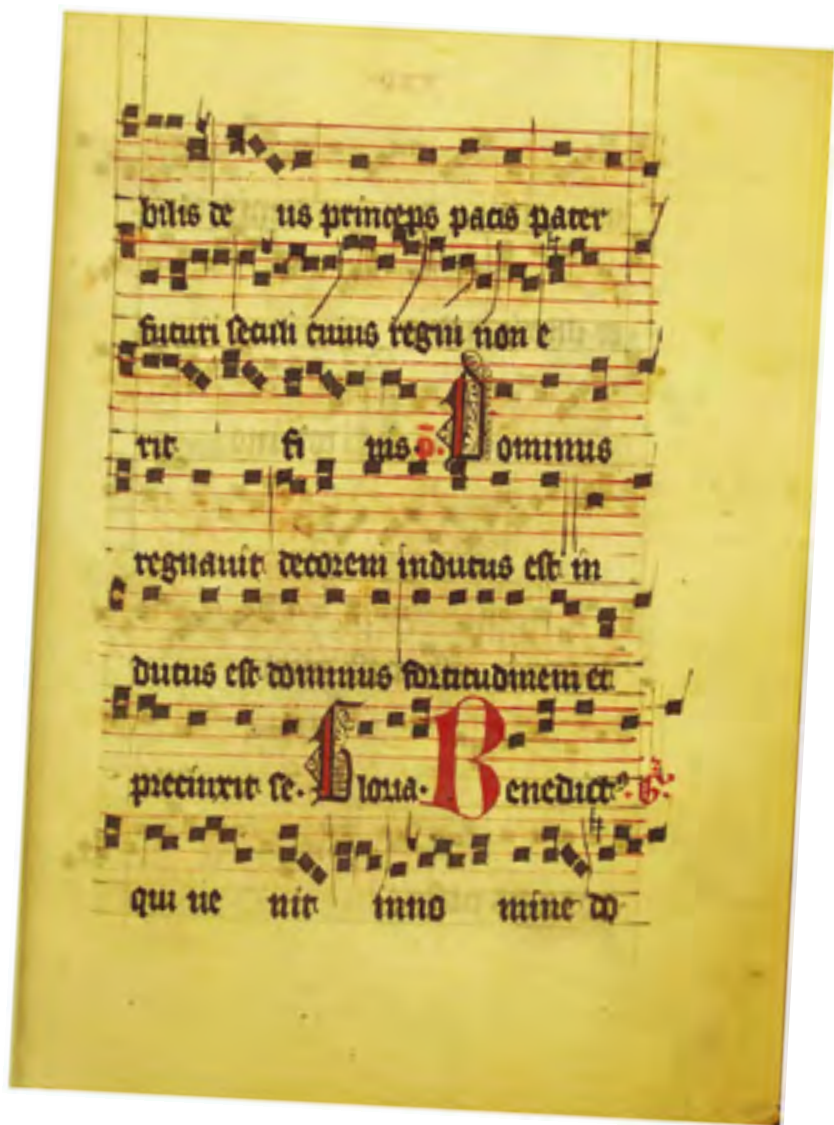 bilis de us princeps pacis pater
futuri seculi cuius regni non e
rit fi nis. Dominus
regnauit decorem indutus est in
dutus est dominus fortitudinem et
precinxit se. Gloria. Benedictus Gr
qui ue nit inno mine do